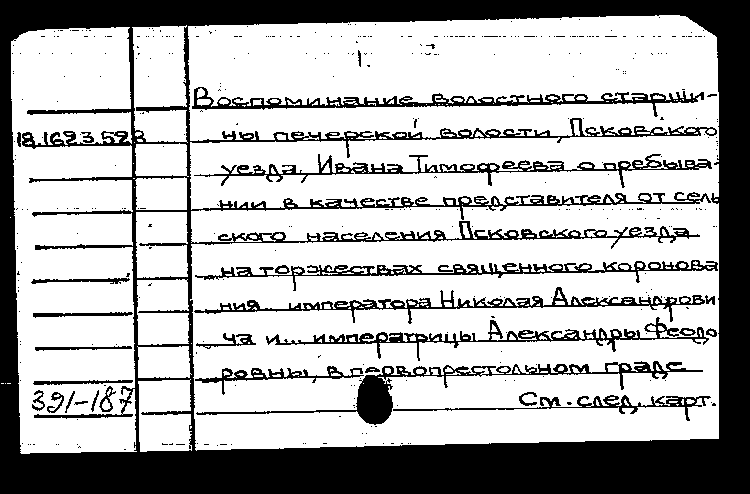 1.
Воспоминание волостного старши-
18.1623.522
ны печерской волости, Псковского
уезда, Ивана Тимофеева о пребыва-
нии в качестве представителя от сель
ского населения Псковского уезда
на торжествах священного коронова
ния императора Николая Александрови
ча и... императрицы Александры Феодо
ровны, в первопрестольном граде
391-187
См. след. карт.